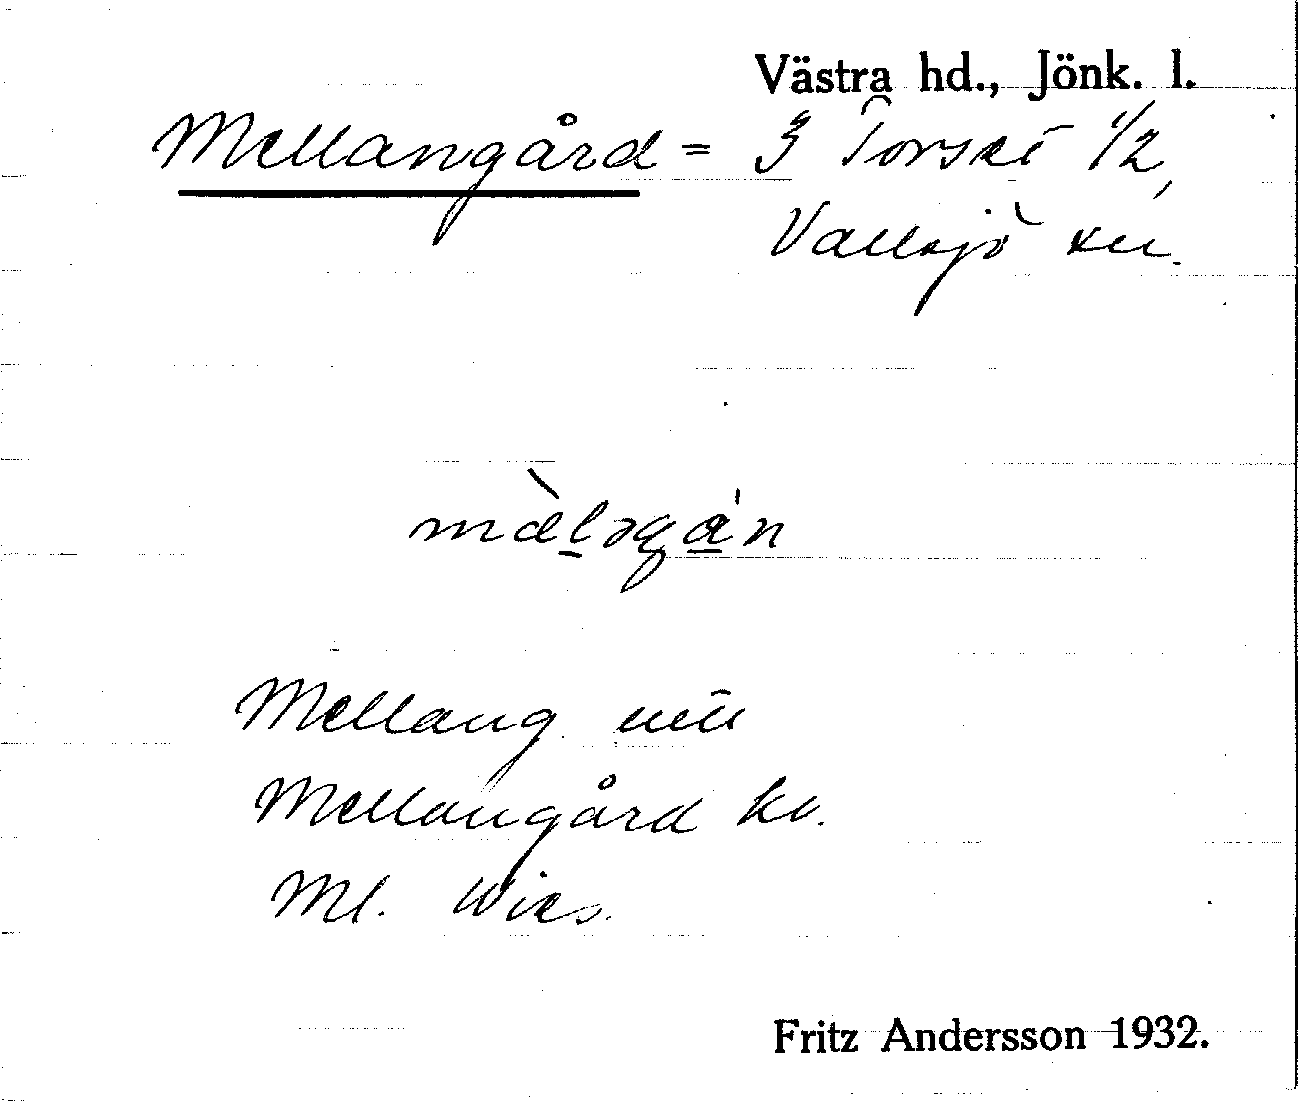 Västra hd., Jönk. l.
Mellangård = 3 Torset 1/2,
Vallsjö sn.
mæ̀ləgá̱n
Mellang
Mellangård kv.
Ml. Wies.
Fritz Andersson 1932.